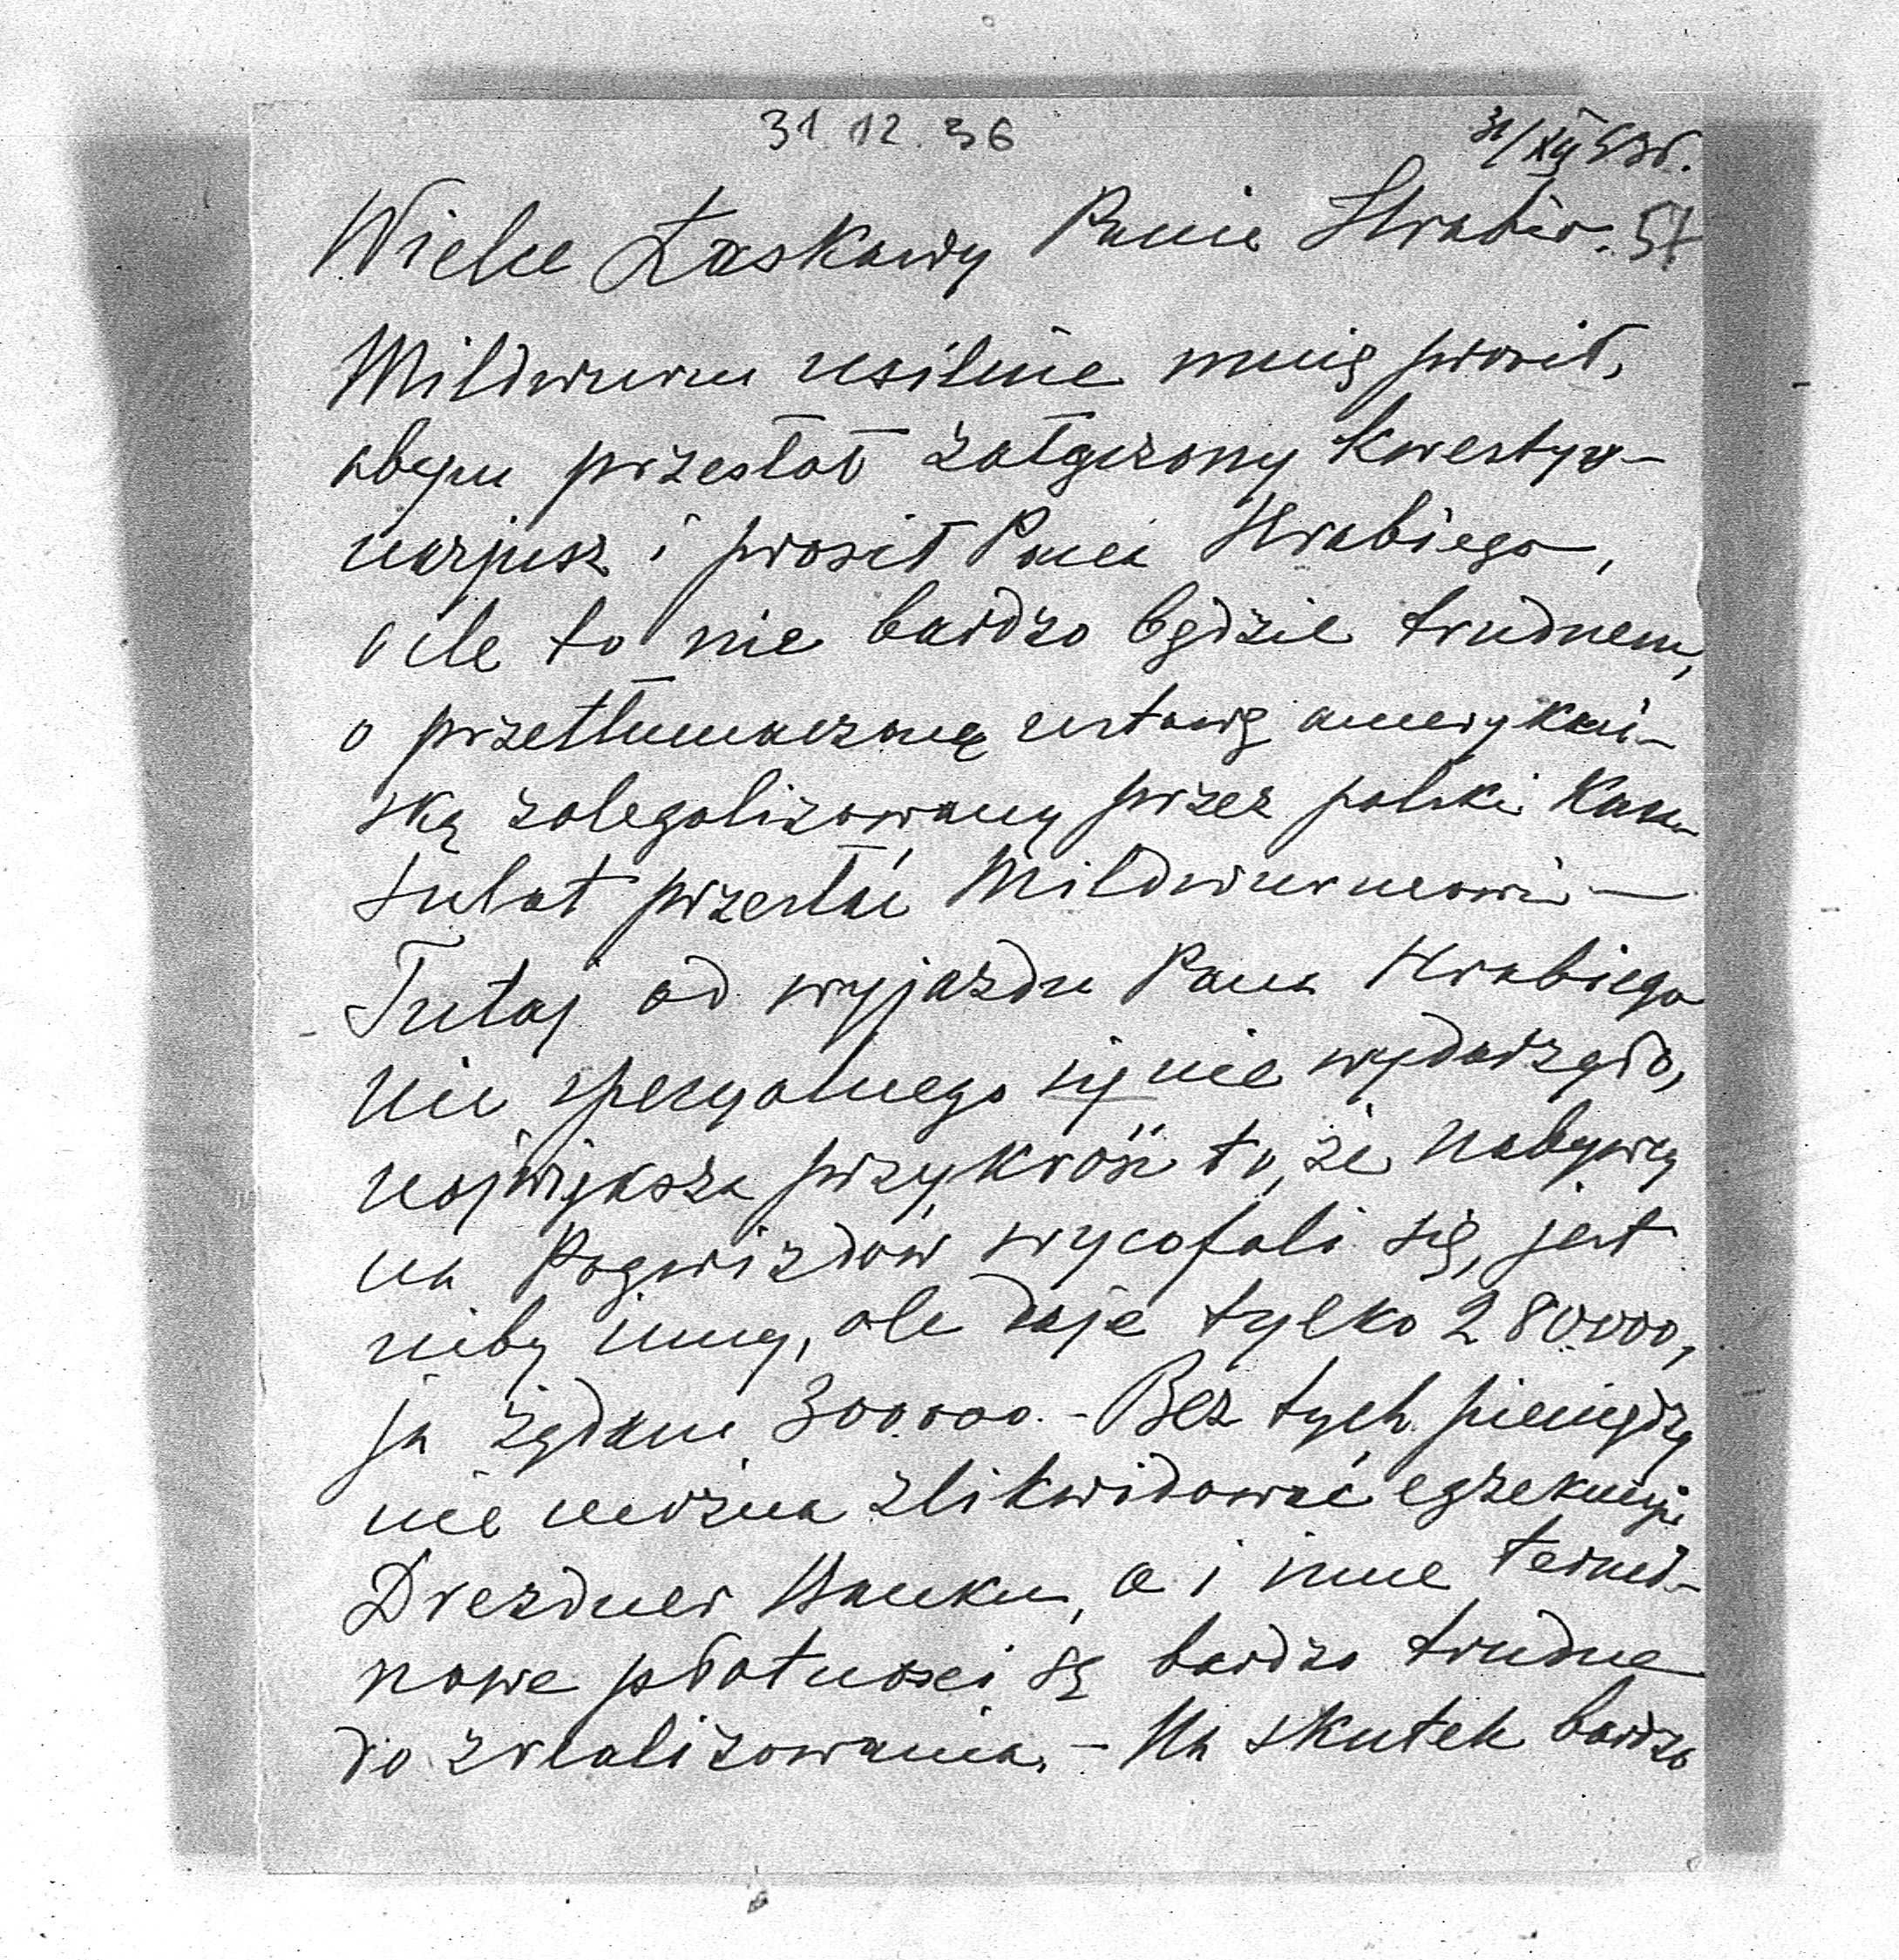 31.12.36
31/XII 936.
Wielce Łaskawy Panie Hrabio. 57
Mildwurm usilnie mnię prosił,
abym przesłał załączony kwestyo-
narjusz i prosił Pana Hrabiego,
o ile to nie bardzo będzie trudnem,
o przetłumaczoną ustawę amerykań-
ską zalegalizowaną przez polski Kon-
sulat przesłać Mildwurmowi —
Tutaj od wyjazdu Pana Hrabiego
nic specyalnego się nie wydarzyło,
największa przykrość to, że nabywcy
na Pogwizdów wycofali się, jest
niby inny, ale daje tylko 280000,
ja żądam 300000. - Bez tych pieniędzy
nie można zlikwidować egzekucyi
Drezdner Banku, a i inne termi-
nowe płatności są bardzo trudne
do zrealizowania. - Na skutek bardzo